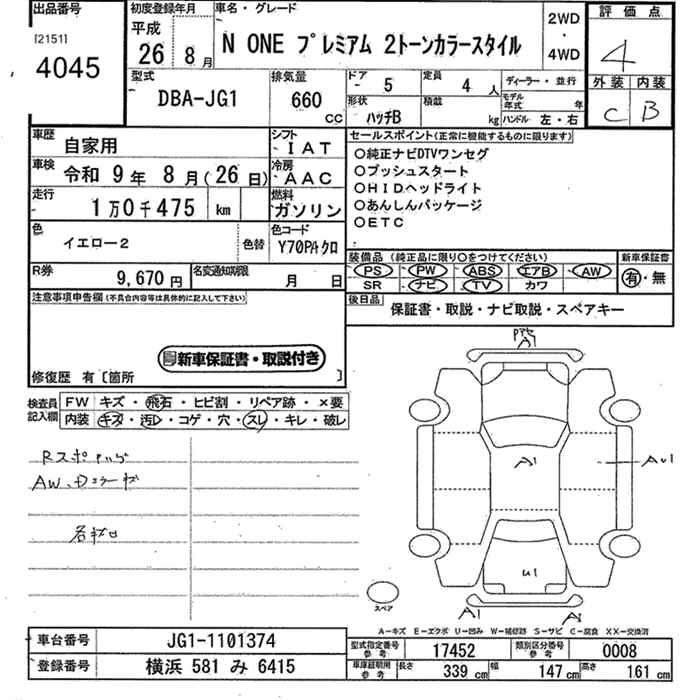 出品番号
[2151]
4045
初度登録年月
平成
26年8月
車名・グレード
N ONE プレミアム 2トーンカラースタイル
2WD
・
4WD
評価点
4
外装 内装
C B
型式
DBA-JG1
排気量
660
CC
ドア
5
定員
4人
ディーラー・並行
形状
ハッチB
積載
kg
モデル年式 年
ハンドル 左・右
車歴
自家用
シフト
IAT
車検
令和 9年 8月(26日)
冷房
AAC
走行
1万0千475 km
燃料
ガソリン
色
イエロー2
色替
色コード
Y70PAクロ
R券
9,670円
名変通知期限
月 日
セールスポイント(正常に機能するものに限ります)
○純正ナビDTVワンセグ
○プッシュスタート
○HIDヘッドライト
○あんしんパッケージ
○ETC
装備品(純正品に限り○をつけてください)
PS PW ABS エアB AW
SR ナビ TV カワ
新車保証書
有・無
後日品
保証書・取説・ナビ取説・スペアキー
注意事項申告欄(不具合内容等は具体的に記入して下さい)
新車保証書・取説付き
修復歴 有〔箇所 〕
検査員記入欄
FW キズ・飛石・ヒビ割・リペア跡・×要
内装 キズ・汚レ・コゲ・穴・スレ・キレ・破レ
AW、
A1
A1
U1
A1
A1
スペア
A-キズ E-エクボ U-凹み W-補修跡 S-サビ C-腐食 XX-交換済
車台番号
JG1-1101374
登録番号
横浜 581 み 6415
型式指定番号 参考
17452
類別区分番号 参考
0008
車庫証明用 参考
長さ 339 cm
幅 147 cm
高さ 161 cm